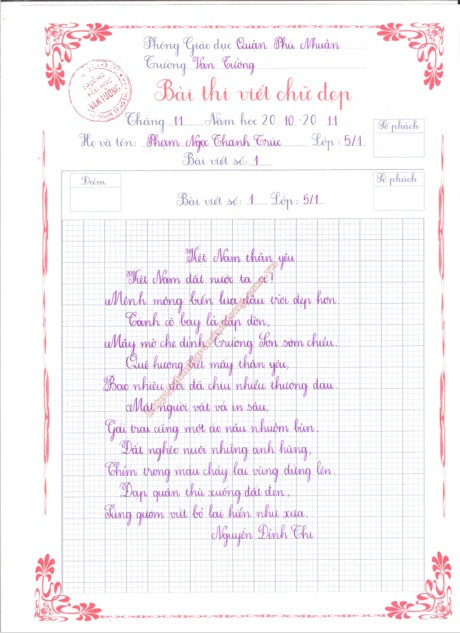 Phòng Giáo dục Quận Phú Nhuận
Trường Vạn Tường
TRƯỜNG
TIỂU HỌC
VẠN TƯỜNG
Bài thi viết chữ đẹp
Tháng 11 Năm học 20 10 - 20 11
Số phách
Họ và tên: Phạm Ngọc Thanh Trúc Lớp: 5/1
Bài viết số: 1
Điểm
Số phách
Bài viết số: 1 Lớp: 5/1
Việt Nam thân yêu
Việt Nam đất nước ta ơi!
Mênh mông biển lúa đâu trời đẹp hơn.
Cánh cò bay lả dập dờn,
Mây mờ che đỉnh Trường Sơn sớm chiều.
Quê hương biết mấy thân yêu,
Bao nhiêu đời đã chịu nhiều thương đau.
Mặt người vất vả in sâu,
Gái trai cũng một áo nâu nhuộm bùn.
Đất nghèo nuôi những anh hùng,
Chìm trong máu chảy lại vùng đứng lên.
Đạp quân thù xuống đất đen,
Súng gươm vứt bỏ lại hiền như xưa.
Nguyễn Đình Thi